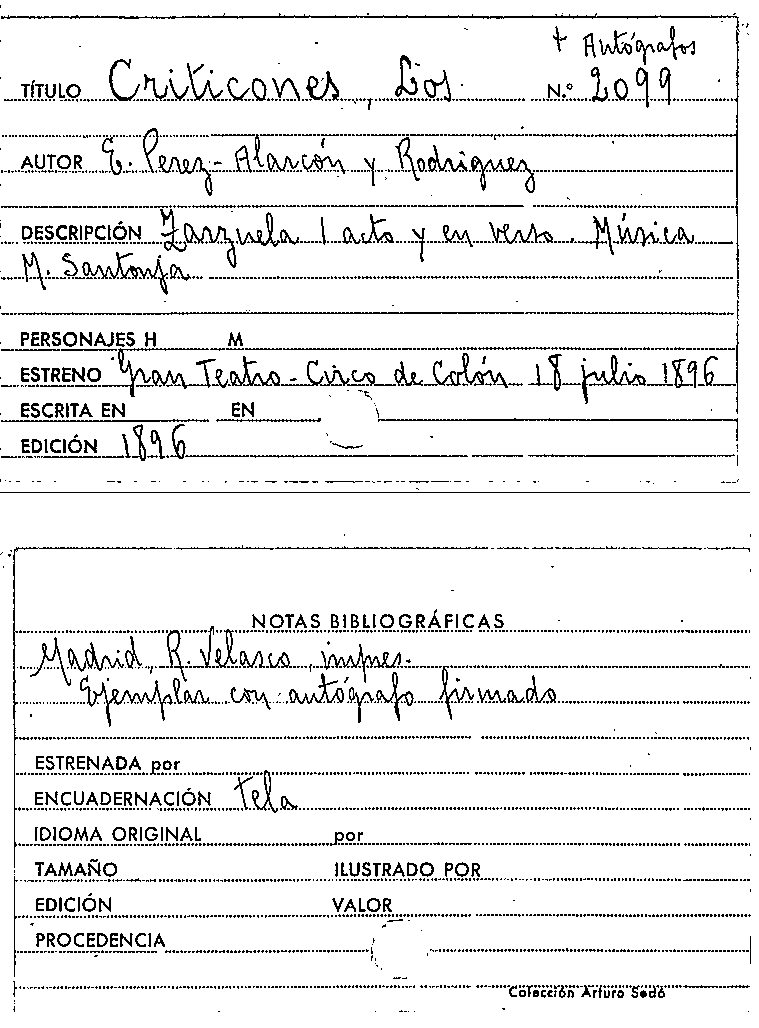 + Autógrafos
TÍTULO Criticones, Los N.º 2099
AUTOR E. Perez-Alarcón y Rodriguez
DESCRIPCIÓN Zarzuela 1 acto y en verso. Música
M. Santonja
PERSONAJES H M
ESTRENO Gran Teatro-Circo de Colón 18 julio 1896
ESCRITA EN EN
EDICIÓN 1896
NOTAS BIBLIOGRÁFICAS
Madrid, R. Velasco, impres.
Ejemplar con autógrafo firmado
ESTRENADA por
ENCUADERNACIÓN Tela
IDIOMA ORIGINAL por
TAMAÑO ILUSTRADO POR
EDICIÓN VALOR
PROCEDENCIA
Colección Arturo Sedó